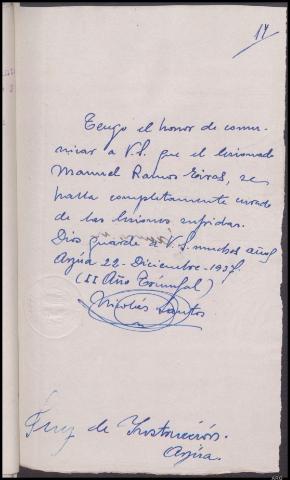 14
Tengo el honor de comu-
nicar a V.S. que el lesionado
Manuel Ramos Eiras, se
halla completamente curado
de las lesiones sufridas.
Dios guarde a V.S. muchos años
Arzúa 22-Diciembre-1937.
(II Año Triunfal)
Nicolás Santos
Juez de Instrucción.
Arzúa.